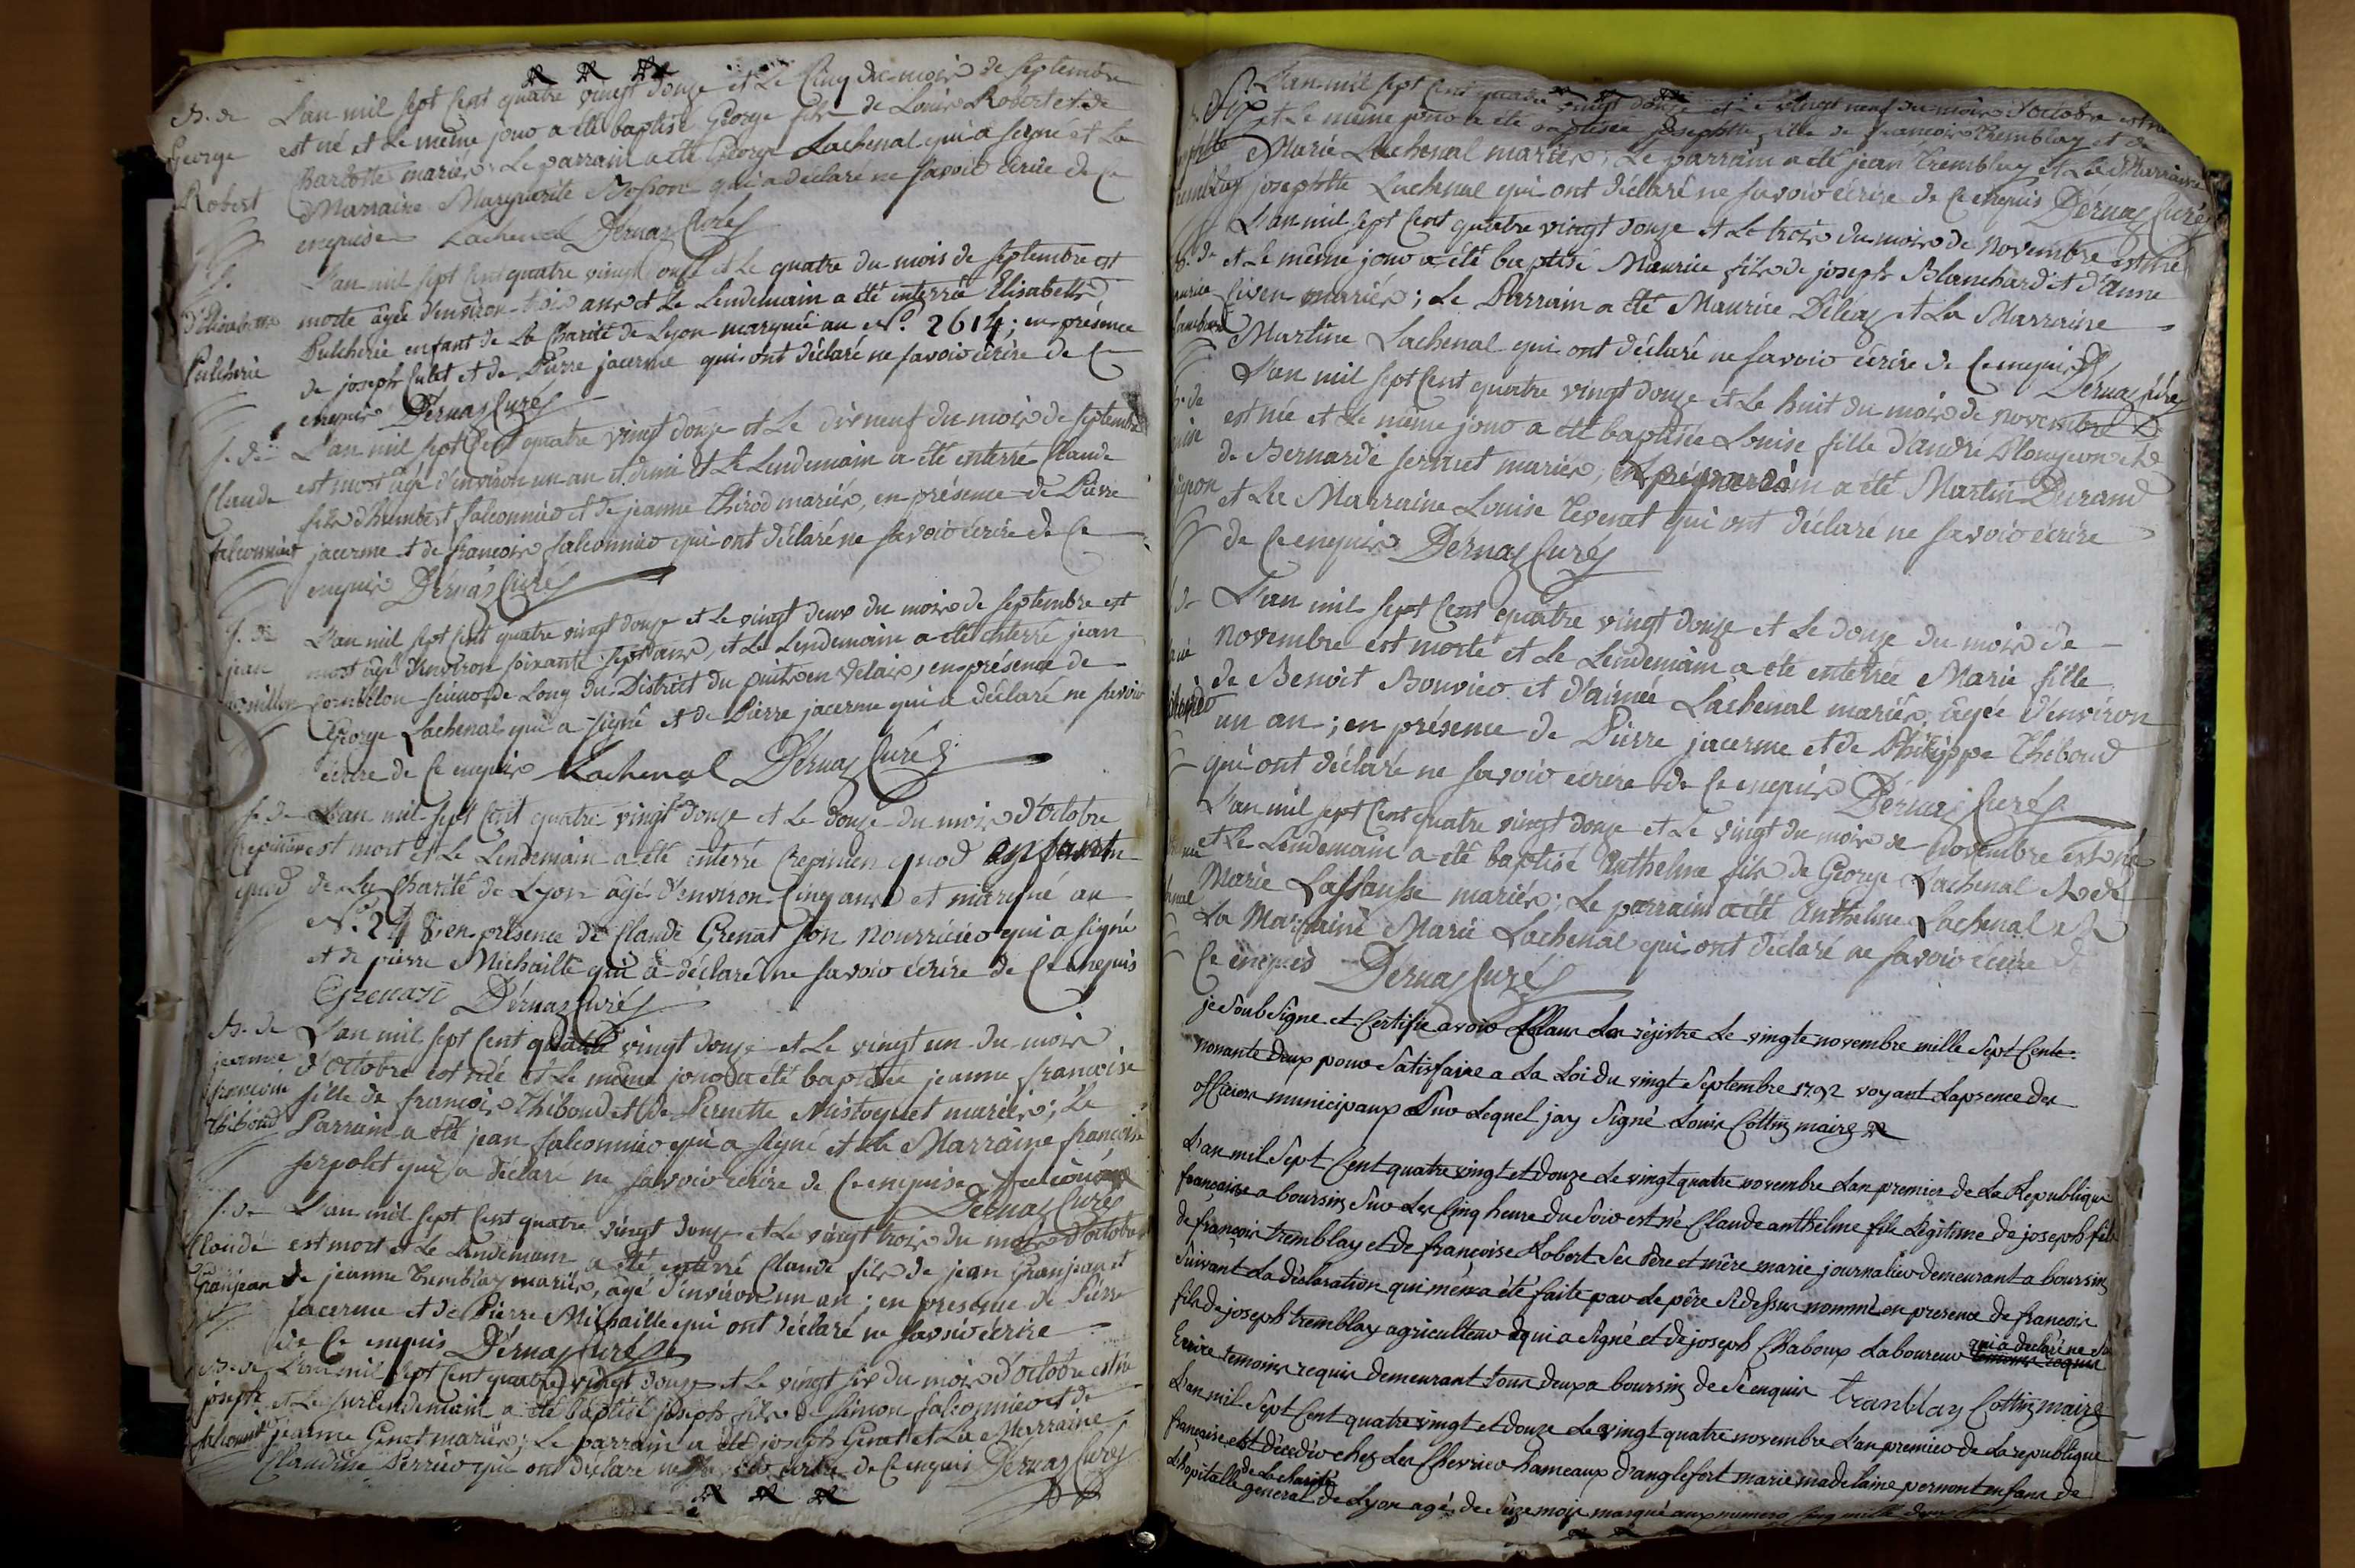 B. de
George
Robert
L'an mil sept Cent quatre vingt douze et Le Cinq du mois de septembre
est né et Le même jour a été baptisé George fils de Louis Robert et de
Charlotte mariés; Le parrain a été George Lachenal qui a signé et La
Marraine Marguerite qui a déclaré ne savoir écrire de Ce
enquise Lachenal Dérnaz Curé
S.
d'Elisabeth
Pulcherie
L'an mil sept Cent quatre vingt douze et Le quatre du mois de septembre est
morte âgée d'environ trois ans et Le Lendemain a été enterrée Elisabeth
Pulcherie enfant de La Charité de Lyon marquée au N.º 2614; en présence
de joseph Culet et de Pierre jacerme qui ont déclaré ne savoir écrire de Ce
enquis Dernaz Curé
S. de
Claude
falconnier
L'an mil sept Cent quatre vingt douze et Le dix neuf du mois de septembre
est mort âgé d'environ un an et demi et Le Lendemain a été enterré Claude
fils d'humbert falconnier et de jeanne Thirod mariés, en présence de Pierre
jacerme et de françois falconnier qui ont déclaré ne savoir écrire de Ce
enquis Dernaz Curé
S. de
jean
L'an mil sept Cent quatre vingt douze et Le vingt deux du mois de septembre est
mort âgé d'environ soixante sept ans, et Le Lendemain a été enterré jean
de Long du District du puits en Velais, en présence de
George Lachenal qui a signé et de Pierre jacerme qui a déclaré ne savoir
écrire de Ce enquis Lachenal Dérnaz Curé
S. de
Crepinien
quod
L'an mil sept Cent quatre vingt douze et Le douze du mois d'Octobre
est mort et Le Lendemain a été enterré Crepinien quod enfant
de La Charité de Lyon âgé d'environ Cinq ans et marqué au
N.º en présence de Claude Grenat son Nourricier qui a signé
et de pierre Michaille qui a déclaré ne savoir écrire de Ce enquis
Grenat Dérnaz Curé
B. de
jeanne
françoise
thiboud
L'an mil sept Cent quatre vingt douze et Le vingt un du mois
d'Octobre est née et Le même jour a été baptisée jeanne françoise
fille de françois Thiboud et de Pernette Mistoquet mariés; Le
Parrain a été jean falconnier qui a signé et La Marraine françoise
serpolet qui a déclaré ne savoir écrire de Ce enquise
Dernaz Curé
S. de
Claude
Granjean
L'an mil sept Cent quatre vingt douze et Le vingt trois du mois d'octobre
est mort et Le Lendemain a été enterré Claude fils de jean Granjean et
de jeanne Tremblay mariés, âgé d'environ un an; en présence de Pierre
jacerme et de Pierre Michaille qui ont déclaré ne savoir écrire
de Ce enquis Dérnaz Curé
B. de
joseph
falconnier
L'an mil sept Cent quatre vingt douze et Le vingt six du mois d'Octobre est né
et Le surlendemain a été baptisé joseph fils de simon falconnier et de
jeanne Genet mariés; Le parrain a été joseph Genet et La Marraine
Claudine Perrier qui ont déclaré ne savoir écrire de Ce enquis Dernaz Curé
L'an mil sept Cent quatre vingt douze et Le vingt neuf du mois d'Octobre est née
et Le même jour a été baptisée josephtte fille de francois Tremblay et de
Marie Lachenal mariés; Le parrain a été jean Tremblay et La Marraine
josephtte Lachenal qui ont déclaré ne savoir écrire de Ce enquis Dérnaz Curé
L'an mil sept Cent quatre vingt douze et Le trois du mois de Novembre est né
et Le même jour a été baptisé Maurice fils de joseph Blanchard et d'Anne
mariés; Le Parrain a été Maurice Déléaz et La Marraine
Martine Lachenal qui ont déclaré ne savoir écrire de Ce enquis
Dérnaz Curé
L'an mil sept Cent quatre vingt douze et Le huit du mois de novembre
est née et Le même jour a été baptisée Louise fille d'andré Plongeon et
de Bernarde sernet mariés, Le parrain a été Martin Durand
et La Marraine Louise Tevenet qui ont déclaré ne savoir écrire
de Ce enquis Dernaz Curé
L'an mil sept Cent quatre vingt douze et Le douze du mois de
Novembre est morte et Le Lendemain a été enterrée Marie fille
de Benoit Bouvier et d'aimée Lachenal mariés, âgée d'environ
un an; en présence de Pierre jacerme et de Philippe Thiboud
qui ont déclaré ne savoir écrire de Ce enquis Dérnaz Curé
L'an mil sept Cent quatre vingt douze et Le vingt du mois de Novembre est né
et Le Lendemain a été baptisé Anthelme fils de George Lachenal et de
Marie Lassausse mariés; Le parrain a été Anthelme Lachenal et
La Marraine Marie Lachenal qui ont déclaré ne savoir écrire de
Ce enquis Dernaz Curé
je Soubsigne et Certifie avoir Le régistre Le vingte novembre mille Sept Cents
nonante deux pour Satisfaire a La Loi du vingt Septembre 1792 voyant Lapsence des
officiers municipaux Sur Lequel jay Signé Louis Cottin maire
L'an mil Sept Cent quatre vingt et douze Le vingt quatre novembre Lan premier de La Republique
francaise a boursin Sur Les Cinq heure du Soir est né Claude anthelme fils Légitime de joseph fils
de françois tremblay et de françoise Robert Ses Père et mère marie journalier demeurant a boursin
Suivant La déclaration qui mén a été faite par Le père Sidessus nommé en presence de francois
fils de joseph tremblay agriculteur qui a Signé et de joseph Chaboux Laboureur qui a declaré ne
Ecrire temoins requis demeurant tous deux a boursin de Se enquis tranblay Cottin maire
L'an mil Sept Cent quatre vingt et douze Le vingt quatre novembre Lan premier de La republique
française est décedée chez Les Chevrier hameaux d'anglefort marie madelaine pernont enfans de
de La charité
Lhopitalle general de Lyon agé de Seize mois marqué aux numero Cinq mille deux Cent